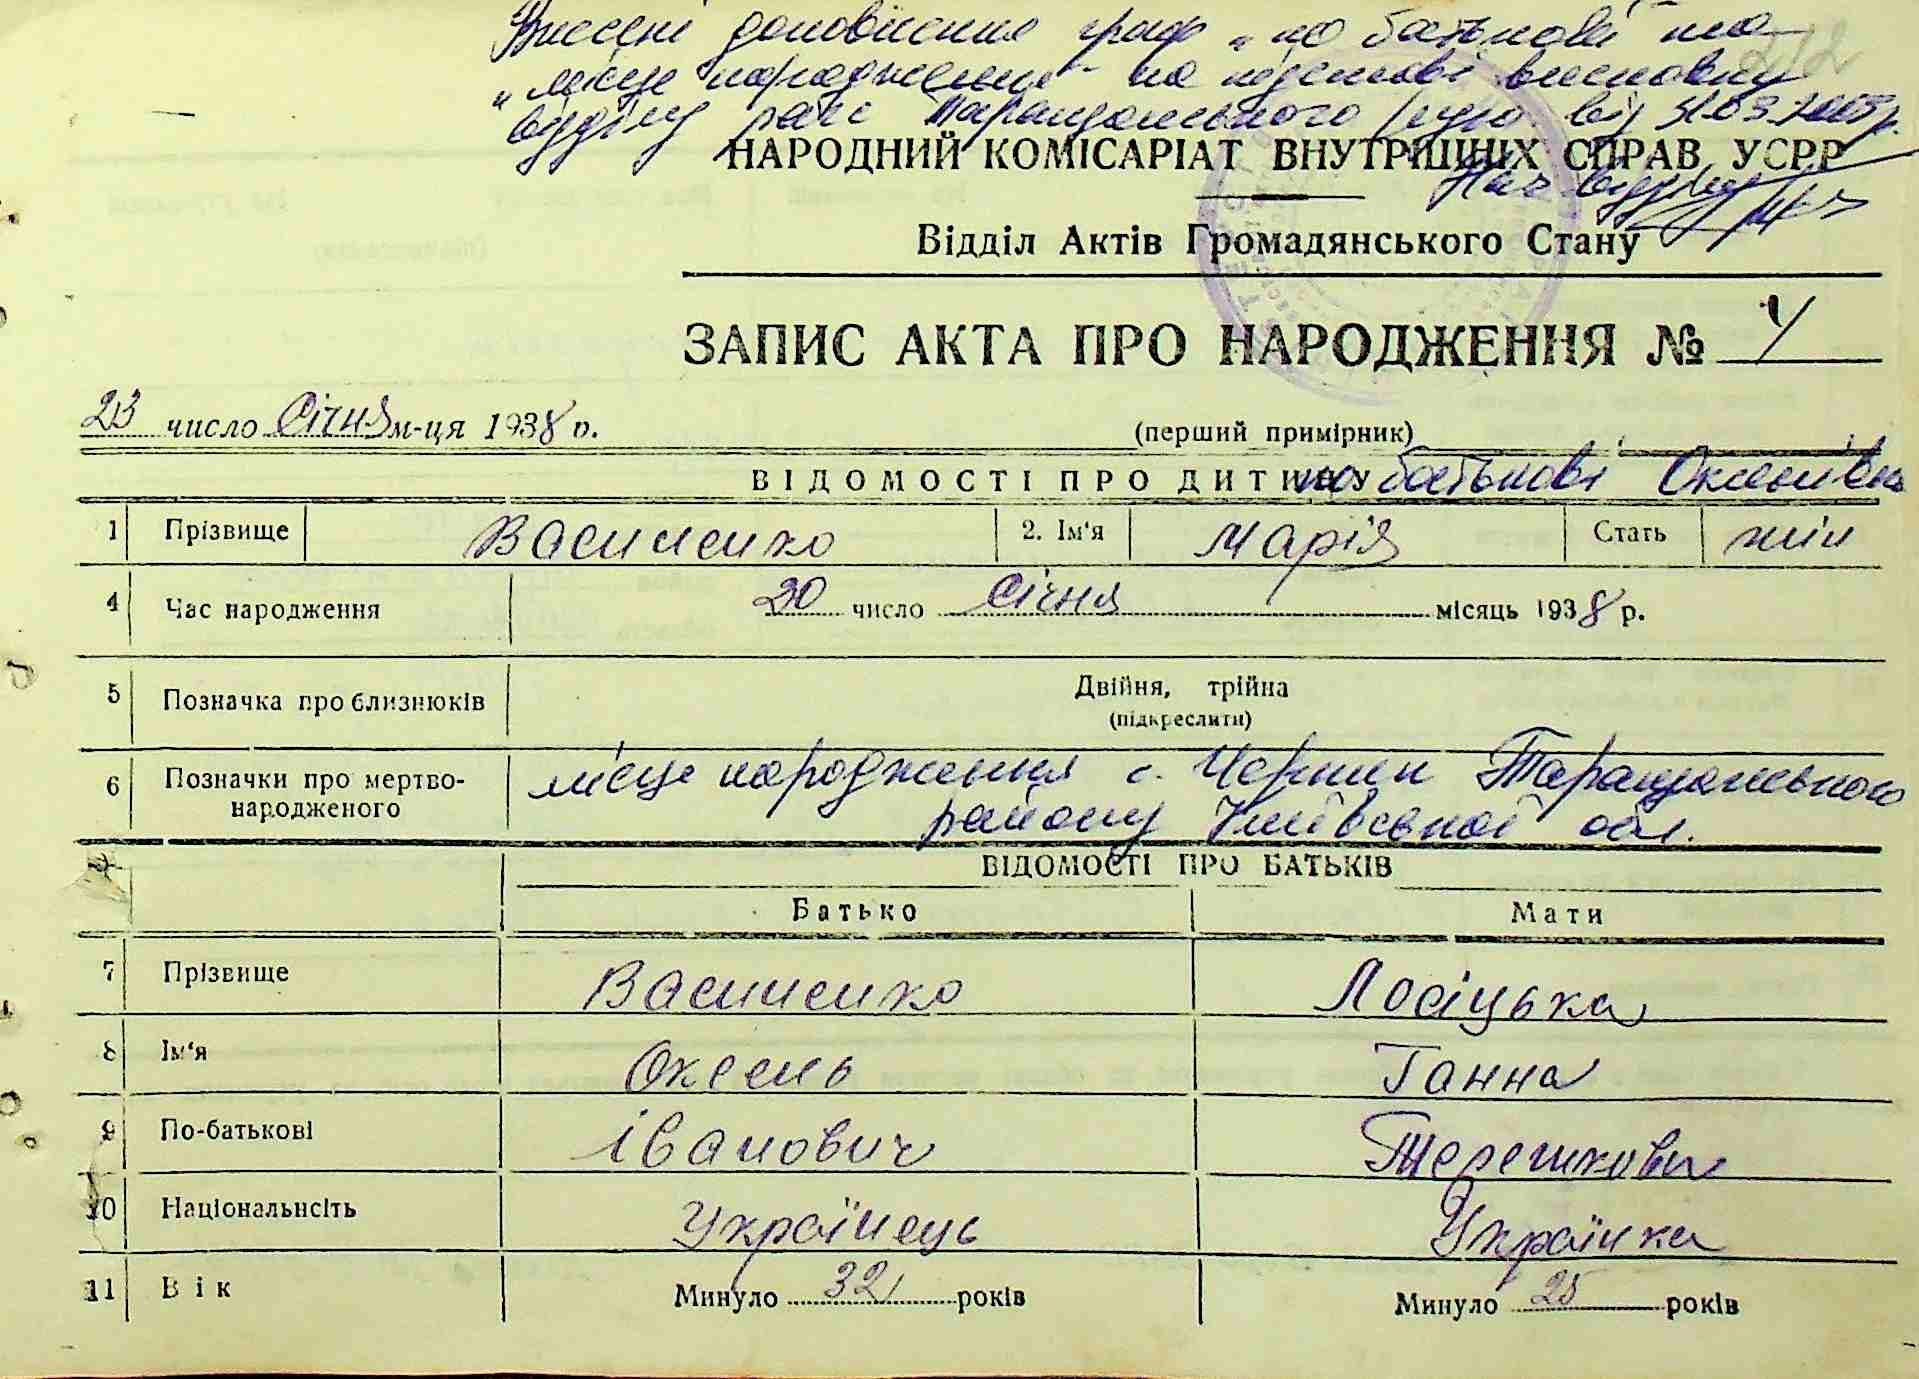 Внесені доповнення граф „по батькові" та
„місце народження" на підставі висновку
відділу рагс Таращанського від 31.03.2003р.
212
НАРОДНИЙ КОМІСАРІАТ ВНУТРІШНІХ СПРАВ УСРР
Нач відділу
Відділ Актів Громадянського Стану
ЗАПИС АКТА ПРО НАРОДЖЕННЯ № 4
23 число Січня м-ця 1938 р.
(перший примірник)
ВІДОМОСТІ ПРО ДИТИНУ по батькові Оксенівна
1 Прізвище Василенко 2. Ім'я Марія Стать жін
4 Час народження 20 число Січня місяць 1938 р.
5 Позначка про близнюків Двійня, трійна
(підкреслити)
6 Позначки про мертво-народженого місце народження с. Чернин Таращанського
району Київської обл.
ВІДОМОСТІ ПРО БАТЬКІВ
Батько Мати
7 Прізвище Василенко Лосіцька
8 Ім'я Оксень Ганна
9 По-батькові Іванович Терешкови
10 Національнсіть Українець Українка
11 Вік Минуло 32 років Минуло 25 років